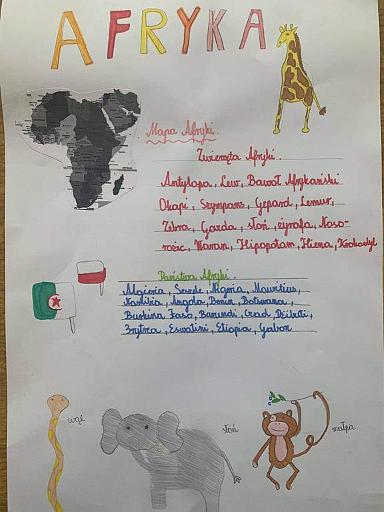 AFRYKA
Mapa Afryki.
Zwierzęta Afryki.
Antylopa, Lew, Bawoł Afrykański
Okapi, Szympans, Gepard, Lemur,
Zebra, Garda, słoń, żyrafa, Noso-
rożec, Waran, Hipopotam, Hiena, Krokodyl
Państwa Afryki.
Algieria, Seszele, Nigeria, Mauritius,
Namibia, Angola, Benin, Botswana,
Burkina Faso, Burundi, Czad, Dżibuti,
Erytrea, Eswatini, Etiopia, Gabon
wąż
słoń
małpa